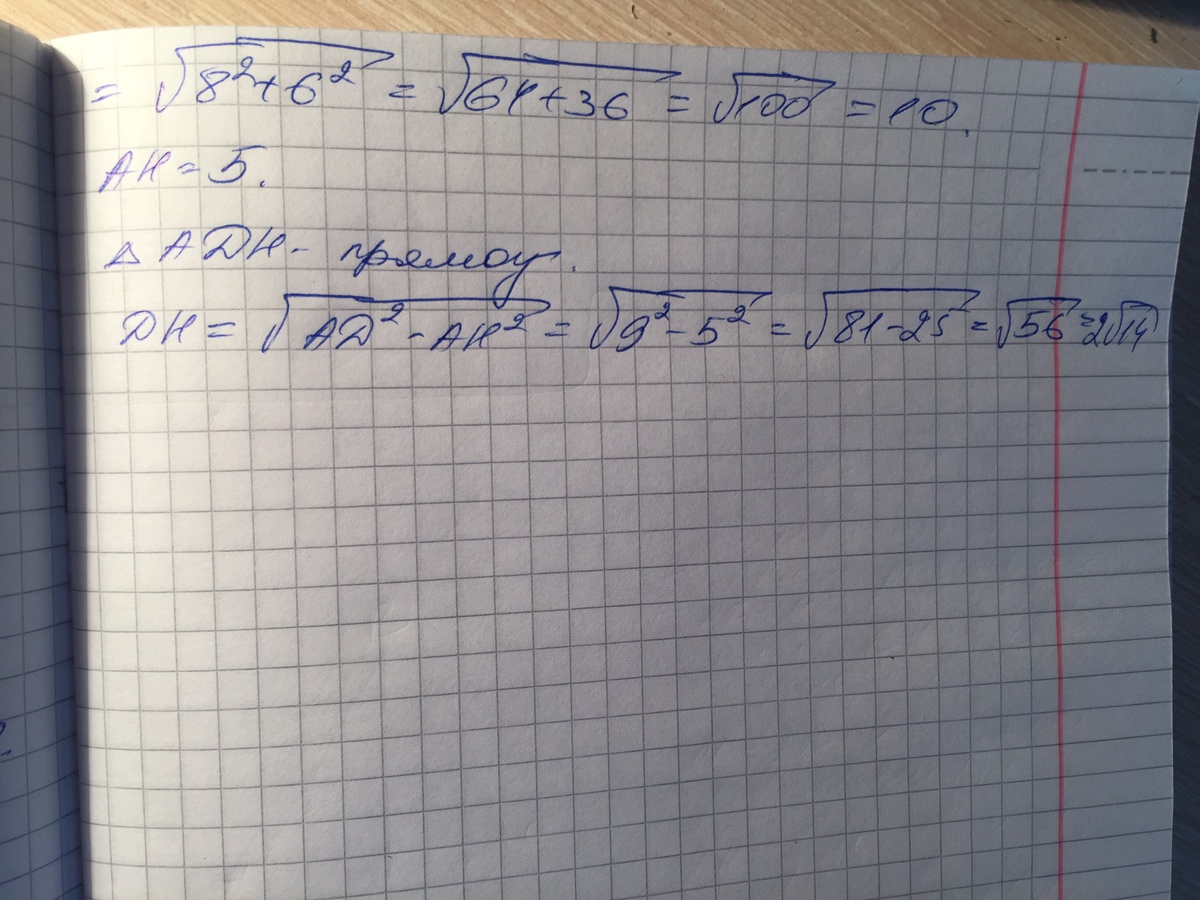 = √8²+6² = √64+36 = √100 = 10.
AH = 5.
△ ADH - прямоу.
DH = √AD² - AH² = √9² - 5² = √81-25 = √56 = 2√14